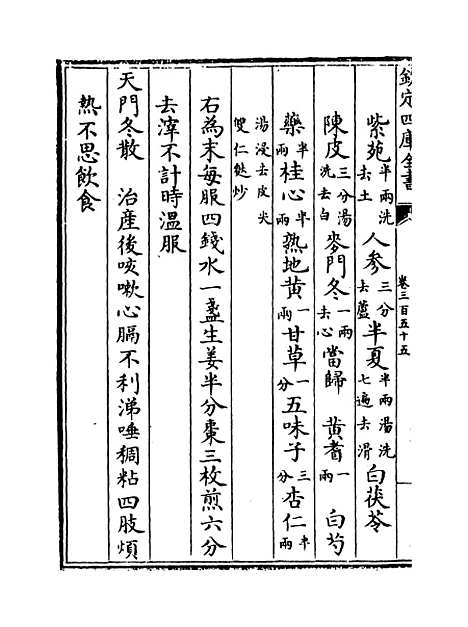 欽定四庫全書
卷三百五十五
紫苑半兩洗去土人參三分去蘆半夏半兩湯洗七遍去滑白茯苓
陳皮三分湯洗去白麥門冬一兩去心當歸 黃耆一兩 白芍
藥半兩桂心半兩熟地黃一兩甘草一分五味子三分杏仁半兩
湯浸去皮尖雙仁麩炒
右為末每服四錢水一盞生姜半分棗三枚煎六分
去滓不計時温服
天門冬散 治産後咳嗽心膈不利涕唾稠粘四肢煩
熱不思飲食